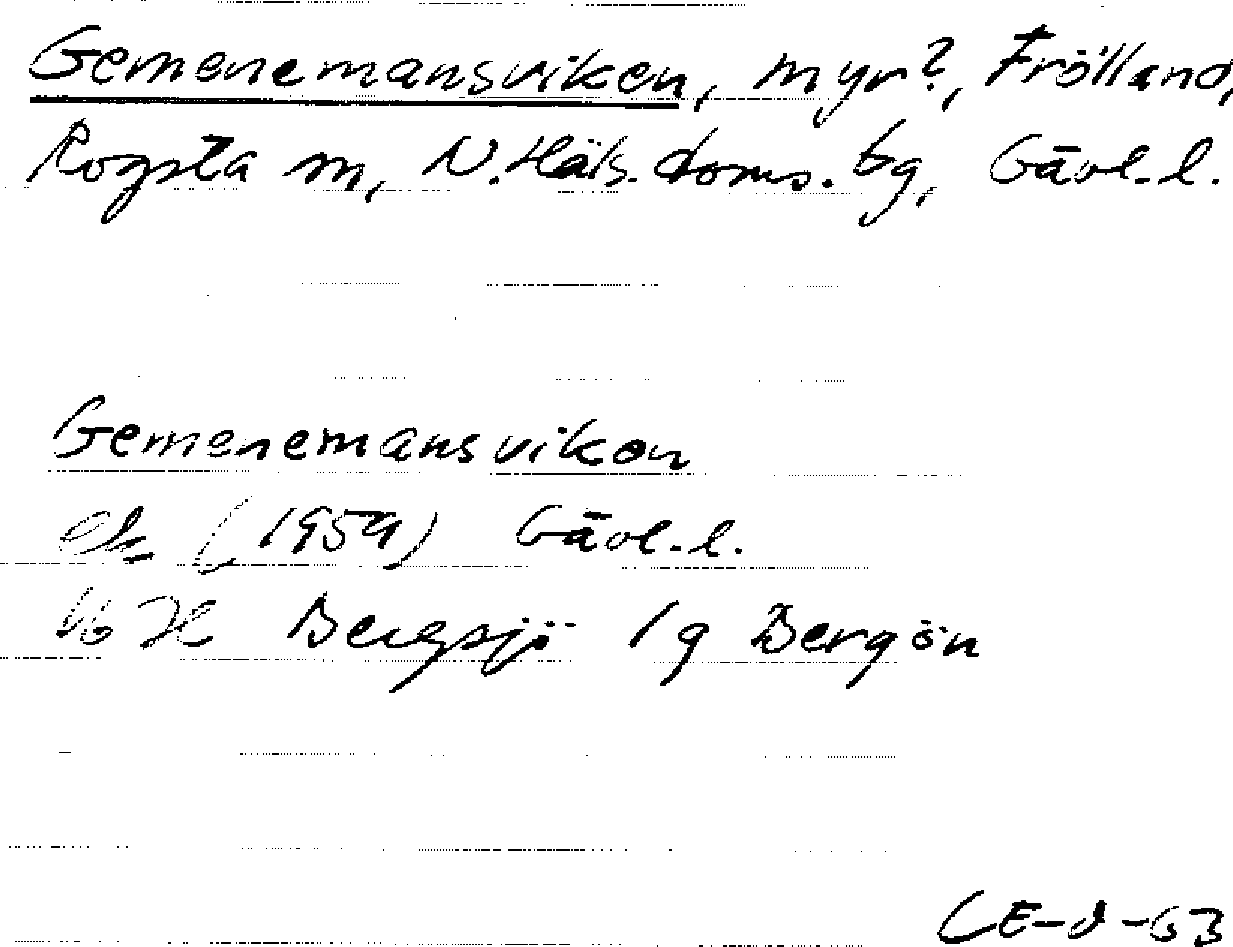 Gemenemansviken, myr?, Frölland,
Rogsta sn, N. Häls. doms. bg, Gävl. l.
Gemenemansviken
ek (1959) Gävl. l.
16 H Bergsjö 1g Bergön